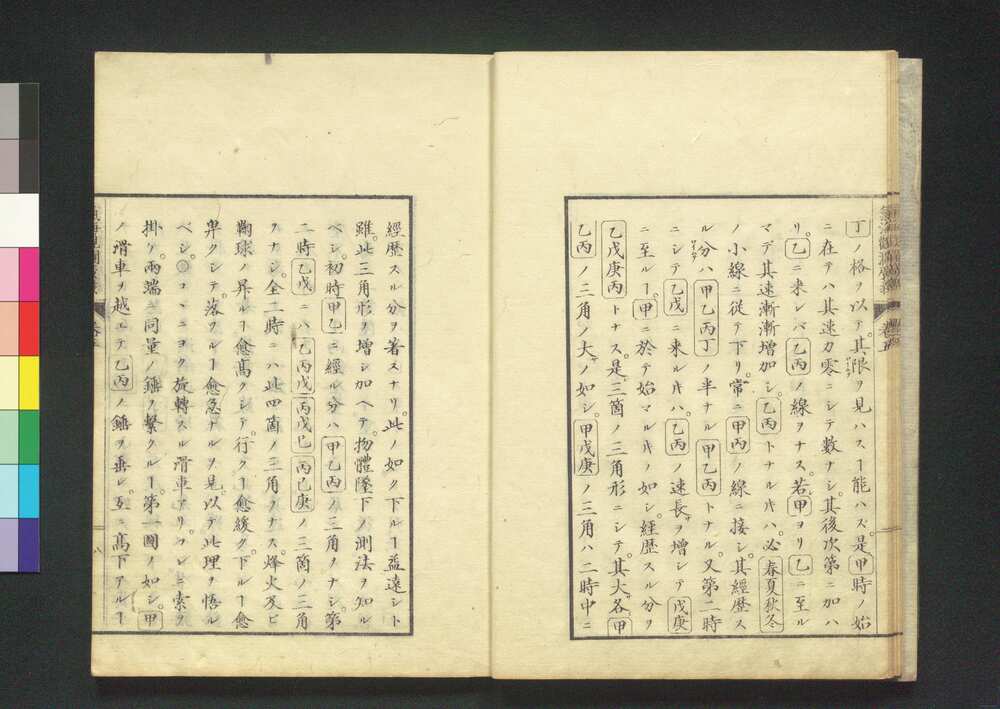 丁ノ格ヲ以テ。其限ヲ見ハスヿ能ハズ。是甲時ノ始
ニ在テハ其速力零ニシテ數ナシ。其後次第ニ加ハ
リ。乙ニ来レバ乙丙ノ線ヲナス。若甲ヨリ乙ニ至ル
マデ其速漸漸增加シ。乙丙トナル𪜈ハ。必春夏秋冬
ノ小線ニ從テ下リ。常ニ甲丙ノ線ニ接シ。其經歴ス
ル分ハ甲乙丙丁ノ半ナル甲乙丙トナル。又第二時
ニシテ乙戊ニ来ル𪜈ハ。乙丙ノ速長ヲ增シテ戊庚
ニ至ルヿ。甲ニ於テ始マル𪜈ノ如シ。經歴スル分ヲ
乙戊庚丙トナス。是三箇ノ三角形ニシテ。其大各甲
乙丙ノ三角ノ大ノ如シ。甲戊庚ノ三角ハ二時中ニ
經歴スル分ヲ著スナリ。此ノ如ク下ルヿ益遠シト
雖。此三角形ヲ增シ加ヘテ。物體墜下ノ測法ヲ知ル
ベシ。初時甲乙ニ經ル分ハ甲乙丙ノ三角ヲナシ。第
二時乙戊ニハ乙丙戊丙戊己丙己庚ノ三箇ノ三角
ヲナシ。全二時ニハ此四箇ノ三角ヲナス。烽火及ビ
鞠球ノ昇ルヿ愈高クシテ。行クヿ愈緩ク。下ルヿ愈
卑クシテ。落ツルヿ愈急ナルヲ見。以テ此理ヲ悟ル
ベシ。◎コヽニヨク旋轉スル滑車アリ。コレニ索ヲ
掛ケ。兩端ニ同量ノ錘ヲ繋クルヿ。第一圖ノ如シ。甲
ノ滑車ヲ越エテ乙丙ノ錘ヲ垂レ。互ニ高下アルヿ
卷五
八